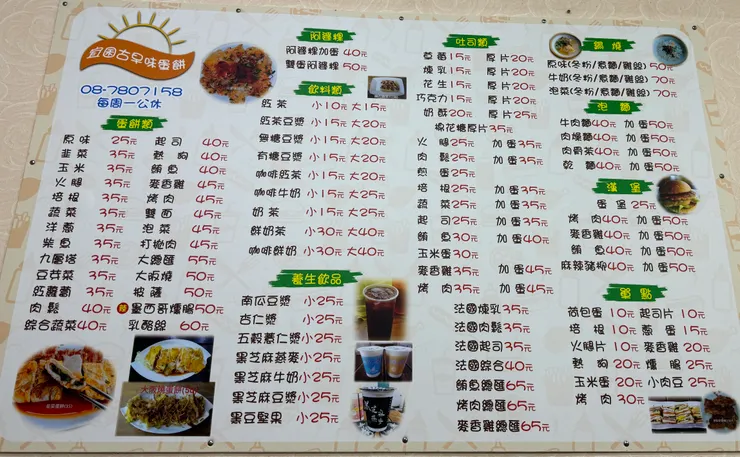 宜園古早味蛋餅
08-7807158
每周一公休
蛋餅類
原味 25元 起司 40元
韭菜 35元 熱狗 40元
玉米 35元 鮪魚 40元
火腿 35元 麥香雞 45元
培根 35元 烤肉 45元
蔬菜 35元 雙面 45元
洋蔥 35元 泡菜 45元
柴魚 35元 打拋肉 45元
九層塔 35元 大總匯 55元
豆芽菜 35元 大阪燒 50元
紅蘿蔔 35元 披薩 50元
肉鬆 40元 辣 墨西哥燻腸 50元
綜合蔬菜 40元 乳酪絲 60元
阿婆粿
阿婆粿加蛋 40元
雙蛋阿婆粿 50元
飲料類
紅茶 小10元 大15元
紅茶豆漿 小15元 大20元
無糖豆漿 小15元 大20元
有糖豆漿 小15元 大20元
咖啡紅茶 小15元 大20元
咖啡牛奶 小15元 大25元
奶茶 小15元 大25元
鮮奶茶 小30元 大40元
咖啡鮮奶 小30元 大40元
養生飲品
南瓜豆漿 小25元
杏仁漿 小25元
五穀薏仁漿 小25元
黑芝麻燕麥 小25元
黑芝麻牛奶 小25元
黑芝麻豆漿 小25元
黑豆堅果 小25元
吐司類
草莓15元 厚片20元
煉乳15元 厚片20元
花生15元 厚片20元
巧克力15元 厚片20元
奶酥20元 厚片25元
棉花糖厚片35元
火腿25元 加蛋35元
肉鬆25元 加蛋35元
煎蛋25元
培根25元 加蛋35元
蔬菜25元 加蛋35元
起司25元 加蛋35元
鮪魚30元 加蛋40元
玉米蛋30元
麥香雞35元 加蛋45元
烤肉35元 加蛋45元
法國煉乳35元
法國肉鬆35元
法國起司35元
法國綜合40元
鮪魚總匯65元
烤肉總匯65元
麥香雞總匯65元
鍋燒
原味(冬粉/意麵/雞絲) 50元
牛奶(冬粉/意麵/雞絲) 70元
泡菜(冬粉/意麵/雞絲) 70元
泡麵
牛肉麵40元 加蛋50元
肉燥麵40元 加蛋50元
肉骨茶40元 加蛋50元
乾麵40元 加蛋50元
漢堡
蛋堡25元
烤肉40元 加蛋50元
麥香雞40元 加蛋50元
鮪魚40元 加蛋50元
麻辣豬柳40元 加蛋50元
單點
荷包蛋10元 起司片10元
培根10元 蔥蛋15元
火腿片10元 麥香雞20元
熱狗20元 燻腸25元
玉米蛋20元 小肉豆25元
烤肉30元